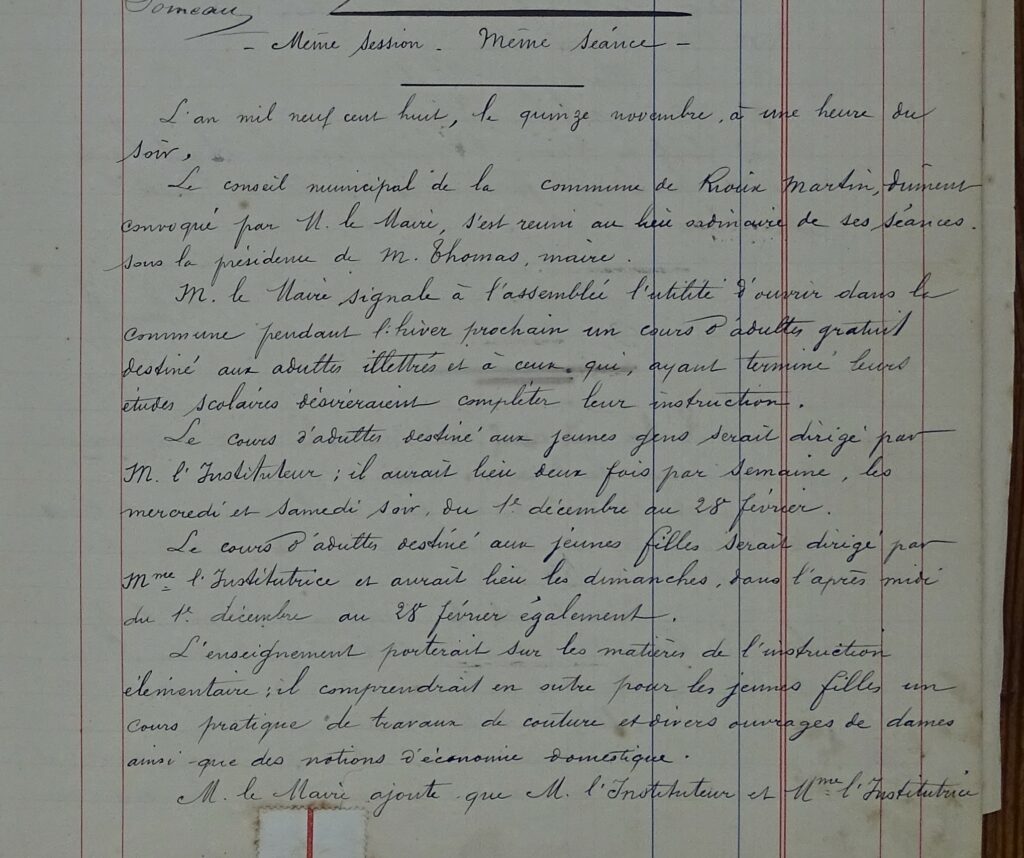 - Même session - Même séance -
L'an mil neuf cent huit, le quinze novembre, à une heure du
soir,
Le conseil municipal de la commune de Rioux Martin, dûment
convoqué par M. le Maire, s'est reuni au lieu ordinaire de ses séances
sous la présidence de M. Thomas, maire.
M. le Maire signale à l'assemblée l'utilité d'ouvrir dans la
commune pendant l'hiver prochain un cours d'adultes gratuit
destiné aux adultes illettrés et à ceux qui, ayant terminé leurs
études scolaires désireraient compléter leur instruction.
Le cours d'adultes destiné aux jeunes gens serait dirigé par
M. l'Instituteur ; il aurait lieu deux fois par semaine, les
mercredi et samedi soir, du 1er décembre au 28 février.
Le cours d'adultes destiné aux jeunes filles serait dirigé par
Mme l'Institutrice et aurait lieu les dimanches, dans l'après midi
du 1er décembre au 28 février également.
L'enseignement porterait sur les matières de l'instruction
élémentaire ; il comprendrait en outre pour les jeunes filles un
cours pratique de travaux de couture et divers ouvrages de dames
ainsi que des notions d'économie domestique.
M. le Maire ajoute que M. l'Instituteur et Mme l'Institutrice